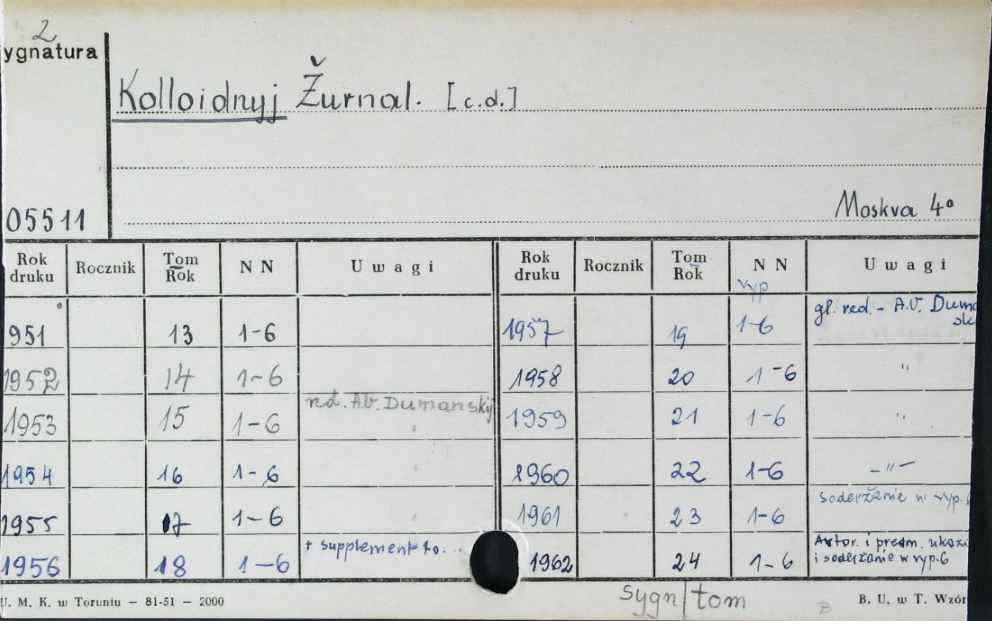 2
ygnatura
Kolloidnyj Žurnal. [c.d.]
05511
Moskva 4°
Rok druku Rocznik Tom Rok NN Uwagi Rok druku Rocznik Tom Rok NN Uwagi
wyp
951 13 1-6 1957 19 1-6 gł. red. - A.V. Duma
1952 14 1-6 1958 20 1-6 "
red. A.V. Dumanskij
1953 15 1-6 1959 21 1-6 "
1954 16 1-6 1960 22 1-6 -"-
1955 17 1-6 1961 23 1-6 soderžanie w wyp.
1956 18 1-6 + supplement to... 1962 24 1-6 Avtor. i predm. ukazi
i soderžanie w vyp.6
U. M. K. w Toruniu - 81-51 - 2000
sygn/tom
B
B. U. w T. Wzór